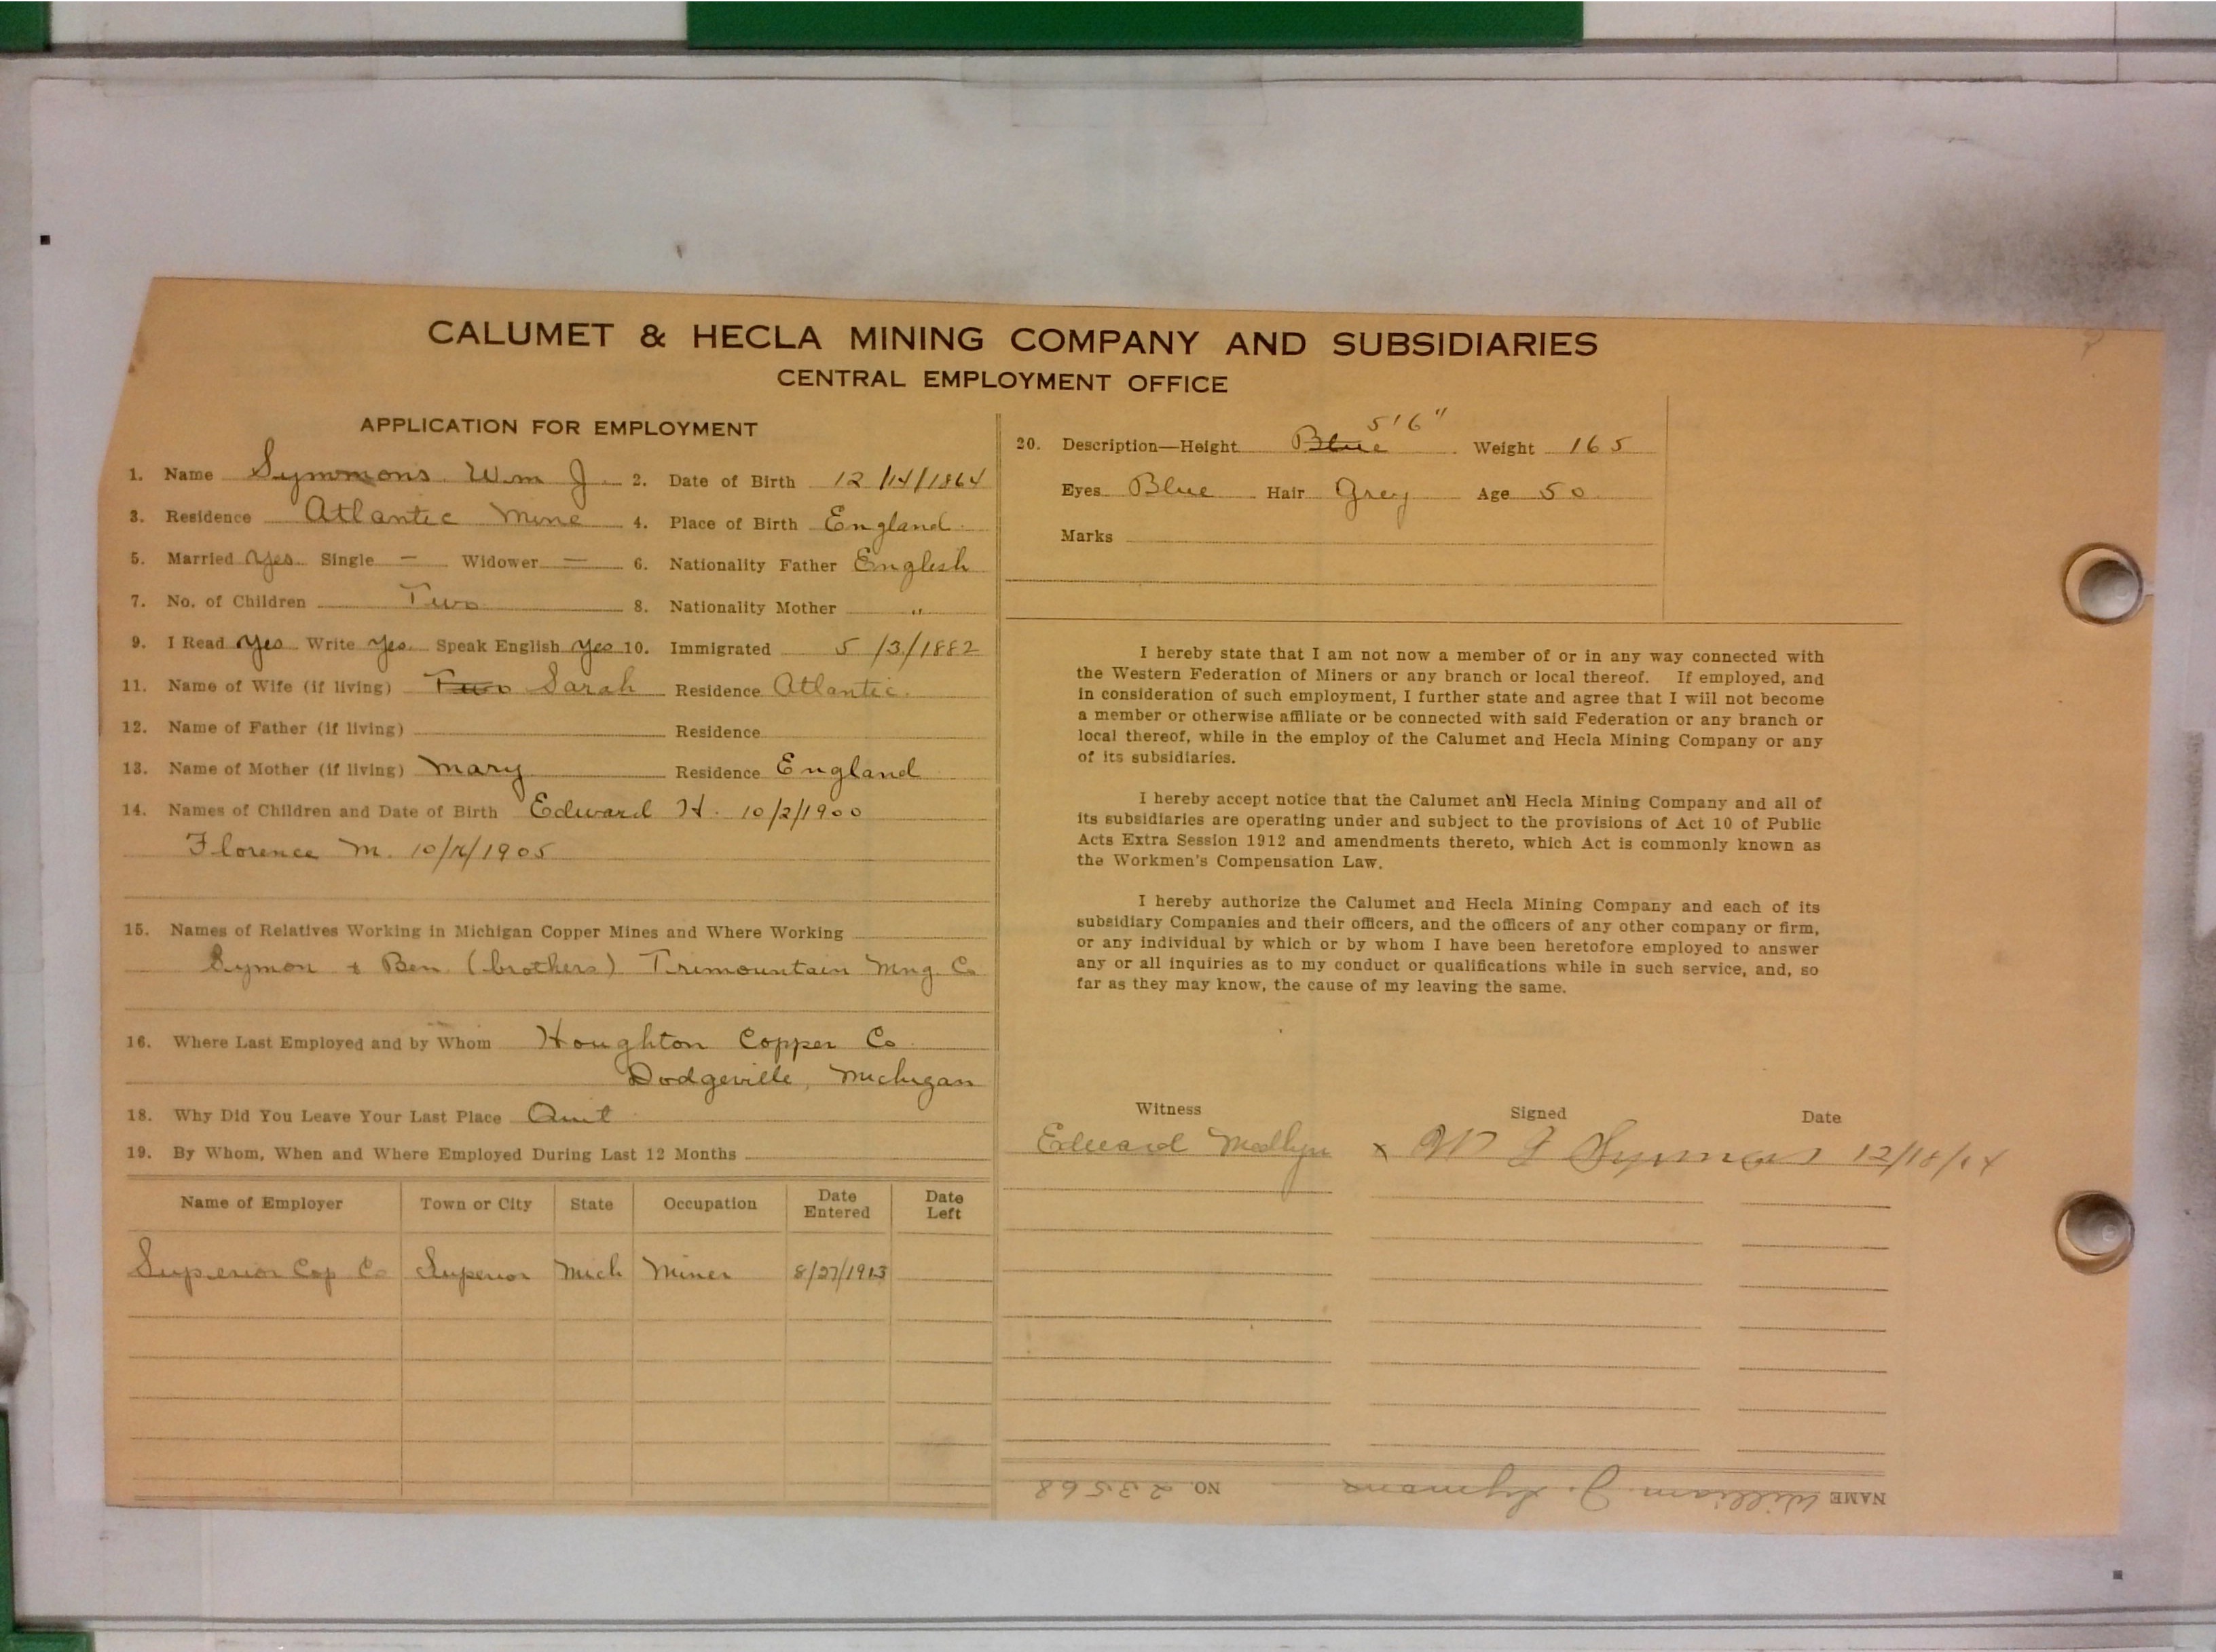 CALUMET & HECLA MINING COMPANY AND SUBSIDIARIES
CENTRAL EMPLOYMENT OFFICE
APPLICATION FOR EMPLOYMENT
1. Name Symmons Wm J 2. Date of Birth 12/14/1864
3. Residence Atlantic Mine 4. Place of Birth England
5. Married Yes Single — Widower — 6. Nationality Father English
7. No. of Children Two 8. Nationality Mother "
9. I Read Yes Write Yes Speak English Yes 10. Immigrated 5/3/1882
11. Name of Wife (if living) Two Sarah Residence Atlantic.
12. Name of Father (if living) Residence
13. Name of Mother (if living) Mary Residence England
14. Names of Children and Date of Birth Edward H. 10/2/1900
Florence M. 1905
15. Names of Relatives Working in Michigan Copper Mines and Where Working
Symon & Ben (brothers) Trimountain Mng. Co
16. Where Last Employed and by Whom Houghton Copper Co
Dodgeville, Michigan
18. Why Did You Leave Your Last Place Quit
19. By Whom, When and Where Employed During Last 12 Months
Name of Employer Town or City State Occupation Date Entered Date Left
Superior Cop Co Superior Mich Miner 8/27/1913
20. Description—Height Blue 5'6" Weight 165
Eyes Blue Hair Grey Age 50
Marks
I hereby state that I am not now a member of or in any way connected with
the Western Federation of Miners or any branch or local thereof. If employed, and
in consideration of such employment, I further state and agree that I will not become
a member or otherwise affiliate or be connected with said Federation or any branch or
local thereof, while in the employ of the Calumet and Hecla Mining Company or any
of its subsidiaries.
I hereby accept notice that the Calumet and Hecla Mining Company and all of
its subsidiaries are operating under and subject to the provisions of Act 10 of Public
Acts Extra Session 1912 and amendments thereto, which Act is commonly known as
the Workmen's Compensation Law.
I hereby authorize the Calumet and Hecla Mining Company and each of its
subsidiary Companies and their officers, and the officers of any other company or firm,
or any individual by which or by whom I have been heretofore employed to answer
any or all inquiries as to my conduct or qualifications while in such service, and, so
far as they may know, the cause of my leaving the same.
Witness Signed Date
Edward Medlyn x W J Symons 12/18/14
NAME William J. Symons NO. 23568